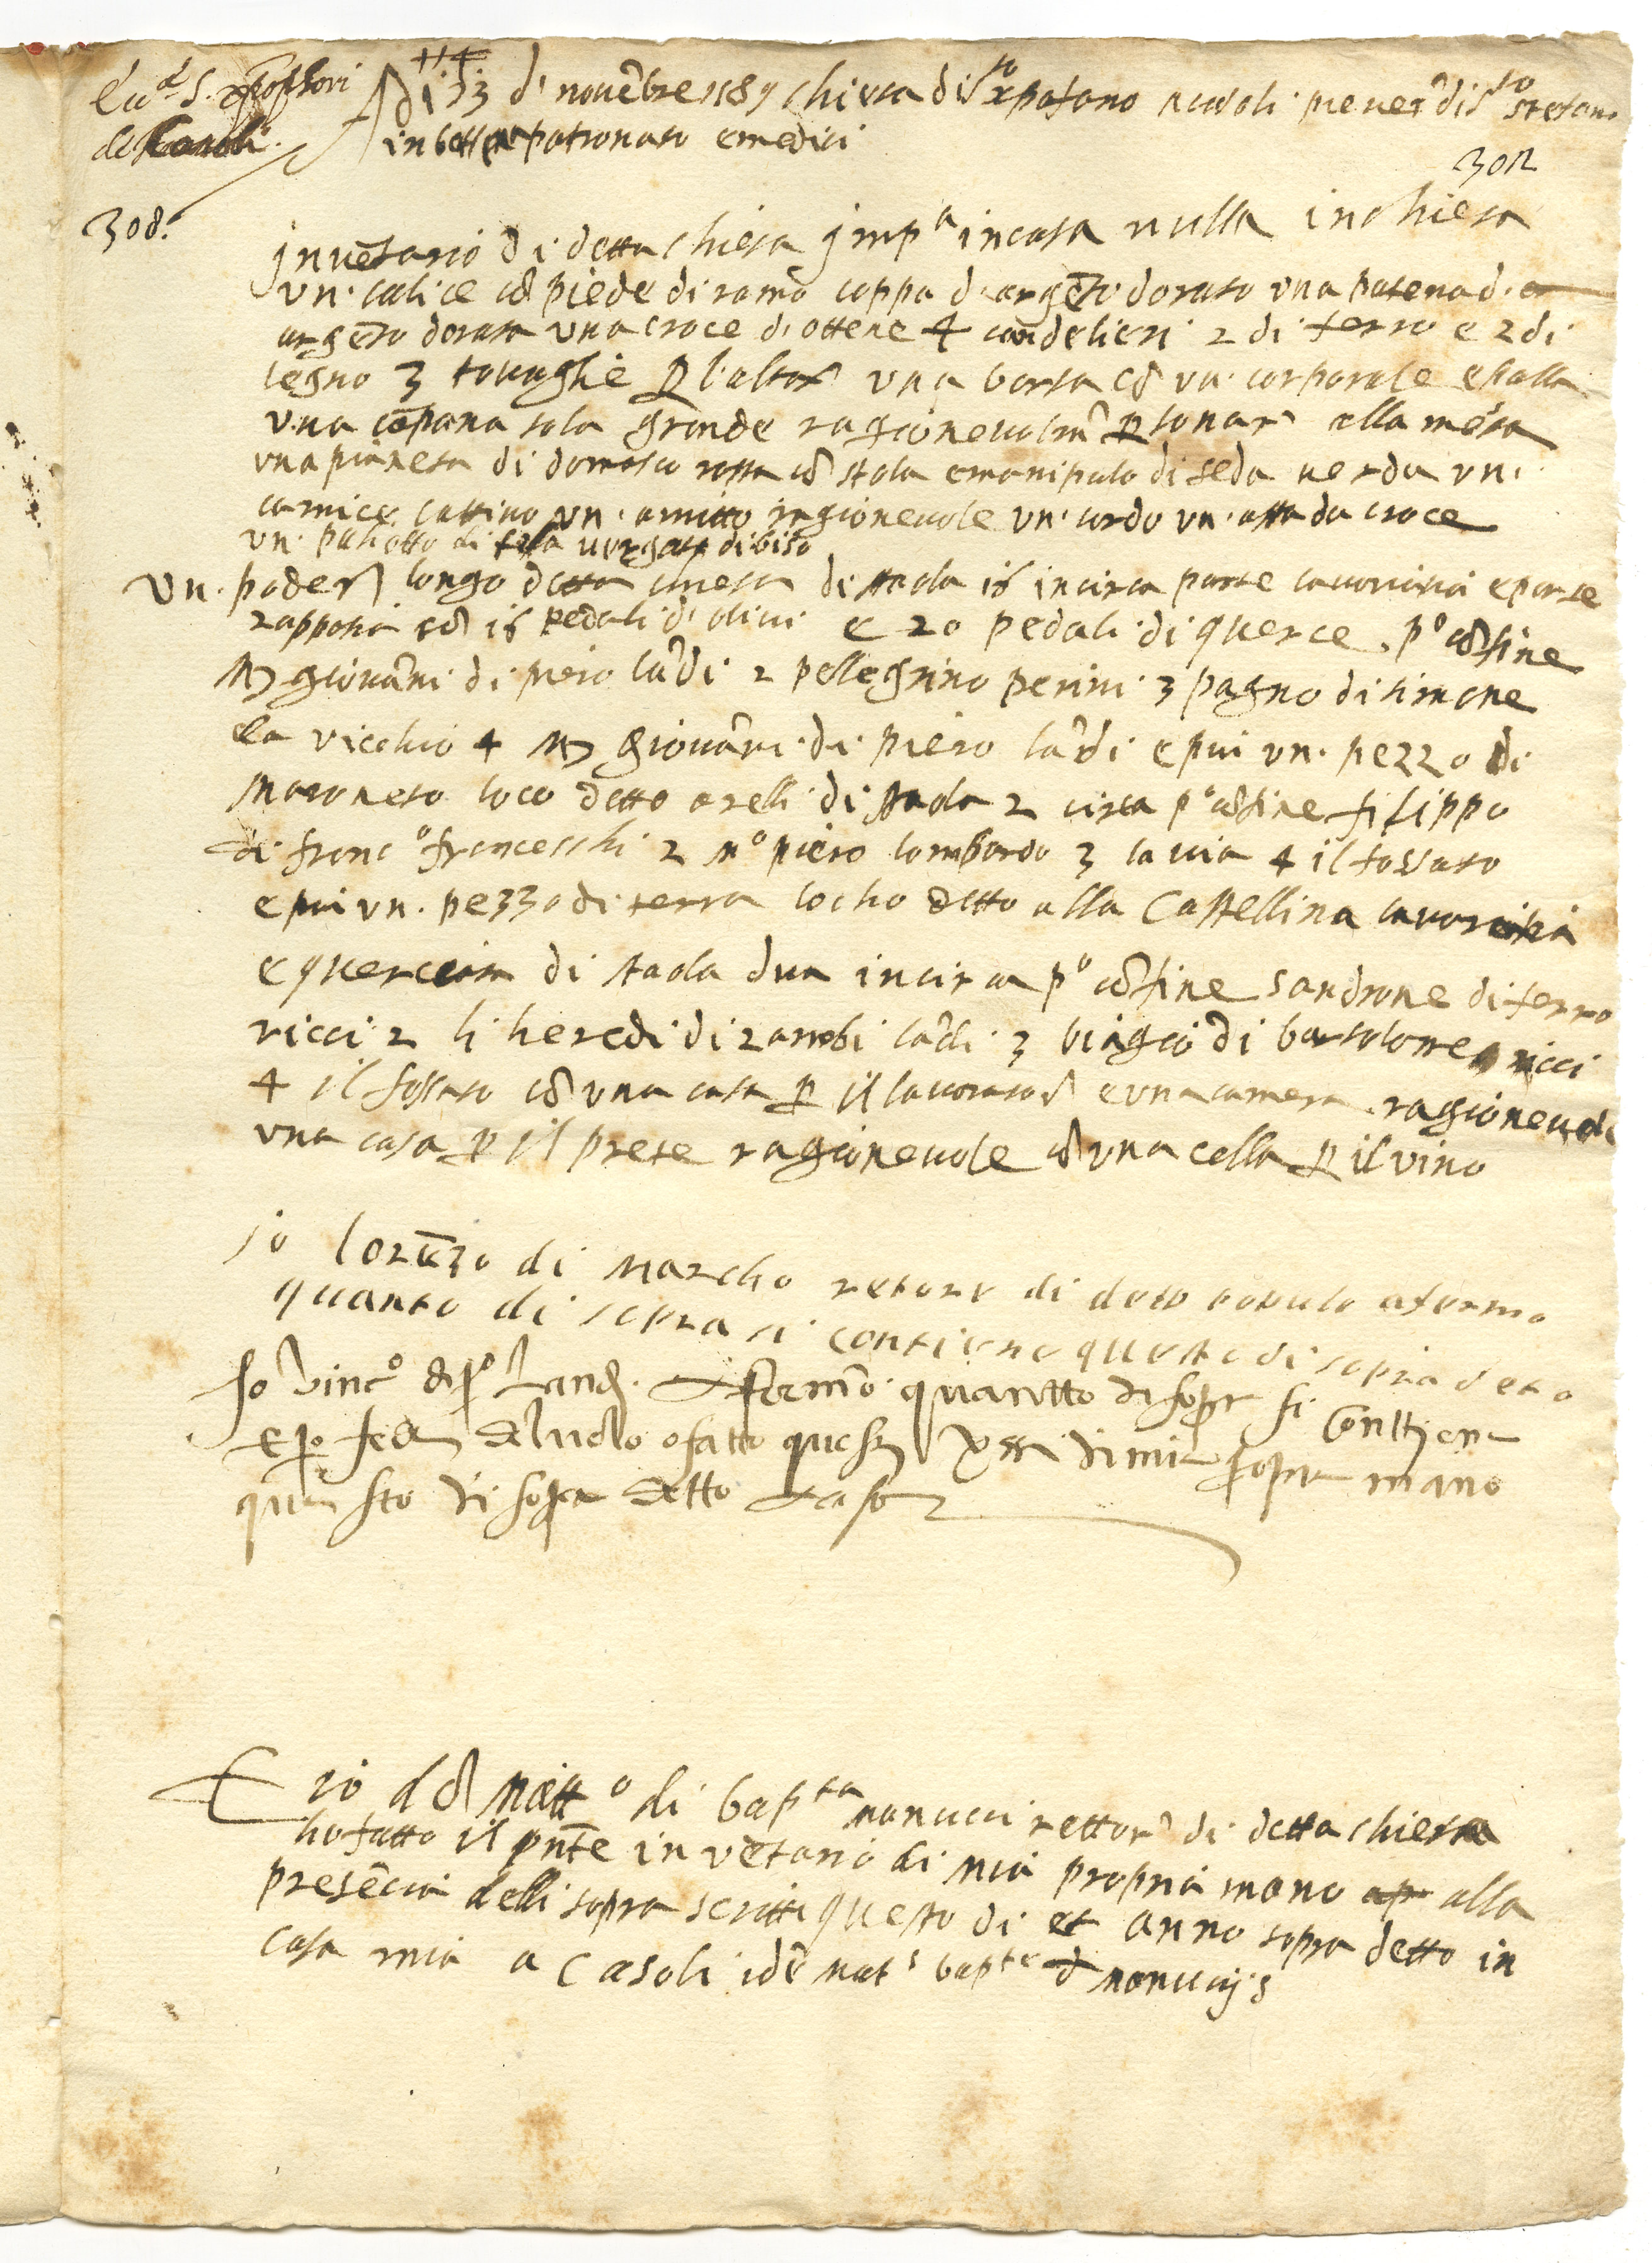 Adi 33 di novēbre 1589 chiesa di S.to xpofano a casoli pievere di S.to Stefano
in botena patronato e medici
302
308.
jnvētario di detta chiesa jmp.a in casa nulla in chiesa
un. calice cō piede di rame coppa d. argēto dorato una patena d.
argēto dorata una croce di ottone 4 candelieri 2 di ferro e 2 di
legno 3 tovaglie p l'altar una borsa cō un. corporale e palla
una cāpana sola grande ragionevolm p sonar alla mesa
una pianeta di domasco rossa cō stola e manipulo di seda verda un.
camice cattivo un. amitto ragionevole un. cordo un. asta da croce
un. paliotto di tela vergata di biso
Un. poder longo detta chiesa di staola 16 incirca parte lavoritia e parte
cō 16 pedali di olivi e 20 pedali di querce. p.o cōfine
giovāni di piero lādi 2 pellegrino perini 3 pagno di simone
da vicchio 4 giovāni di piero lādi e piu un. pezzo di
maroneto loco detto arelli di staola 2 circa p.o cōfine filippo
di franc.o franceschi 2 m.o piero lombardo 3 la via 4 il fossato
e piu un. pezzo di terra locho detto alla Castellina lavoritia
e querciata di staola dua incirca p.o cōfine sandrone di ferro
ricci 2 li heredi di zanobi lādi 3 biagio di bartolomeo ricci
4 il fossato cō una casa p il lavorator e una camera ragionevole
una casa p il prete ragionevole cō una cella p il vino
io lorēzo di marcho retore di deto populo afermo
quanto di sopra si contiene questo di sopra deto
Io vinc.o di p.o Landi afermo quantto di sopra si Conttiene
e p fede del vero o fatto questi versi di mia propria mano
questo di sopra detto
E io dō Matt.o di bap.ta nanucci rettor di detta chiesa
ho fatto il pnte invētario di mia propria mano alla
presēcia delli sopra scritti questo di et anno sopra detto in
casa mia a Casoli idē mat.s bap.te d nanucijs